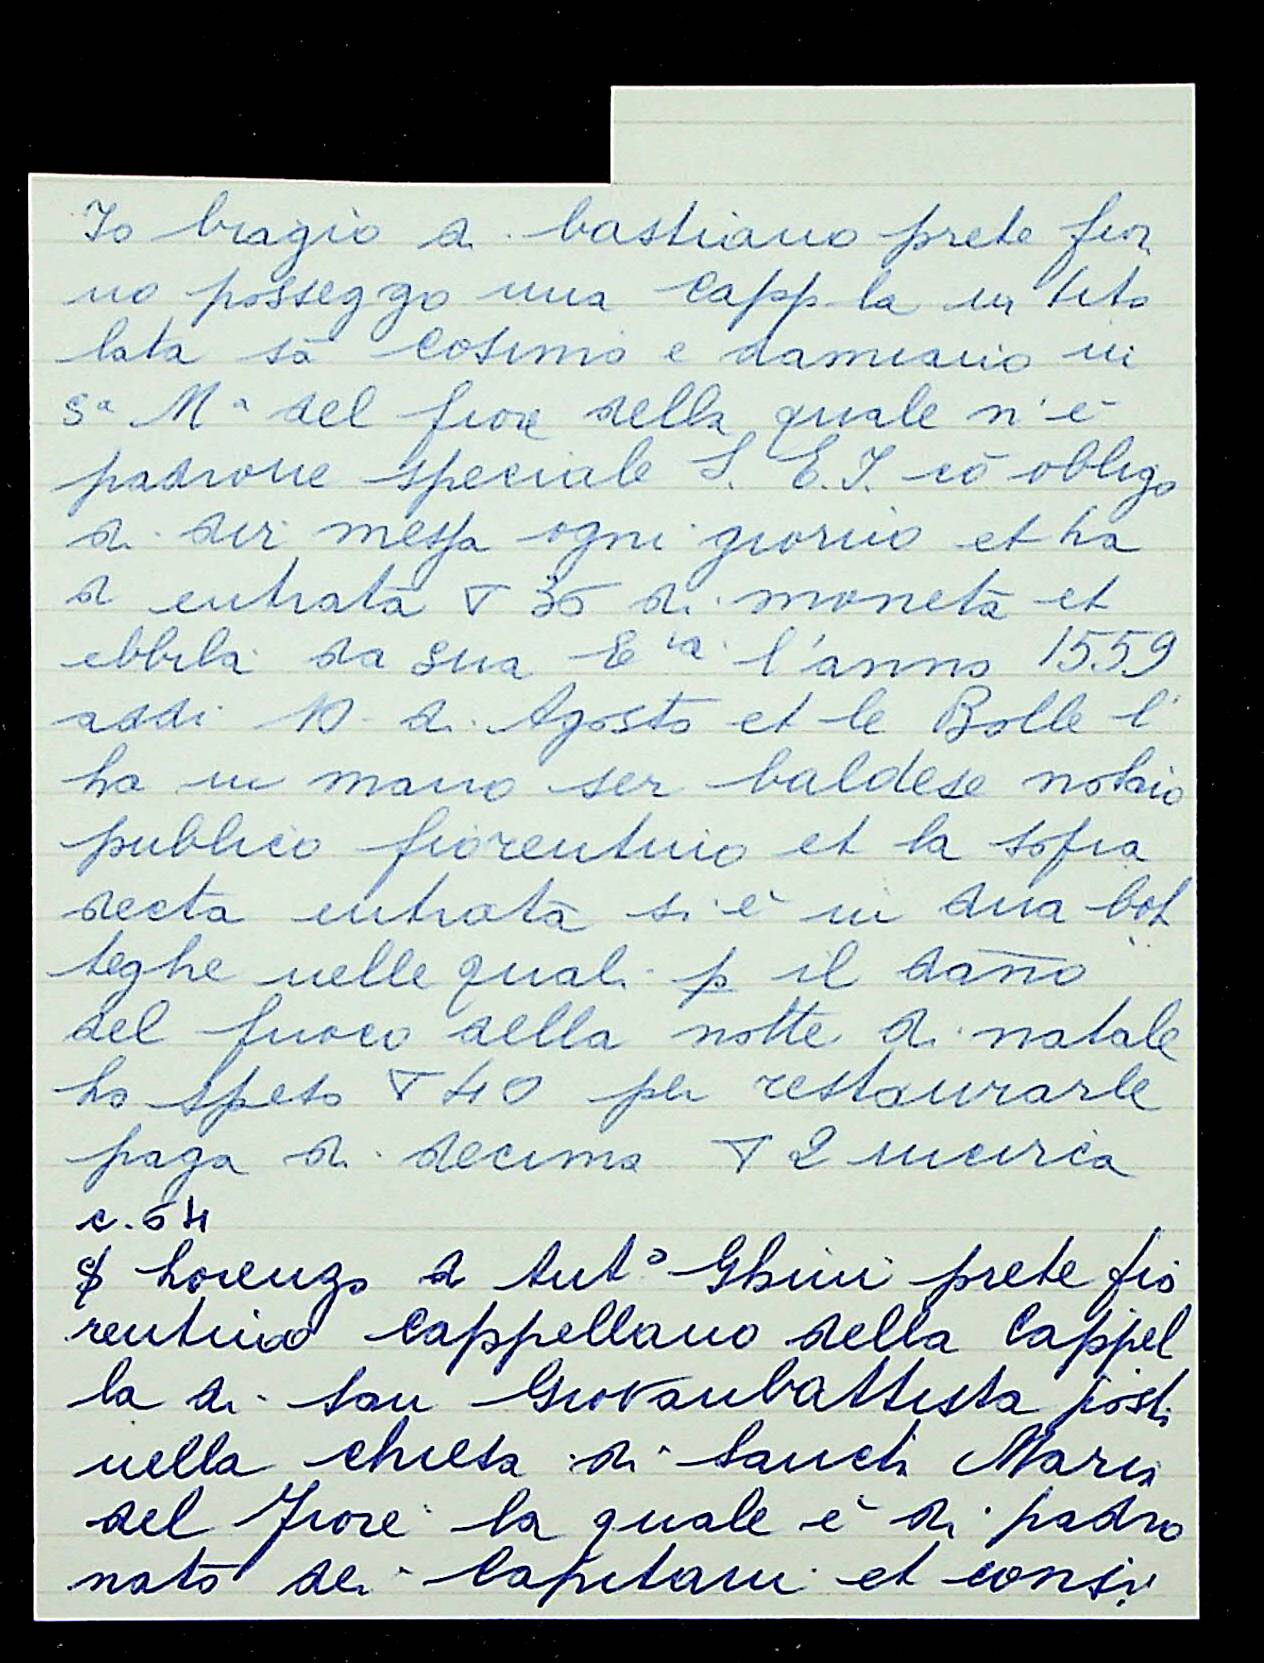 Io biagio di bastiano prete fior
no posseggo una capp la in tito
lata sā Cosimo e damiano in
Sª Mª del fiore della quale n'è
padrone speciale S. E. I. cō obligo
di dir messa ogni giorno et ha
d entrata ∇ 36 di moneta et
ebbila da sua Eᶦᵃ l'anno 1559
addi 10 di Agosto et le Bolle l'
ha in mano ser baldese notaio
publico fiorentino et la sopra
decta entrata si è in dua bot
teghe nelle quali p il daño
del fuoco della notte di natale
ho speso ∇ 40 per restaurarle
paga di decima ∇ 2 incirca
c. 64
Lorenzo d Antº Ghini prete fio
rentino cappellano della Cappel
la di San Giovanbattista posta
nella chiesa di Sancta Maria
del Fiore la quale è di padro
nato dei Capitani et consi